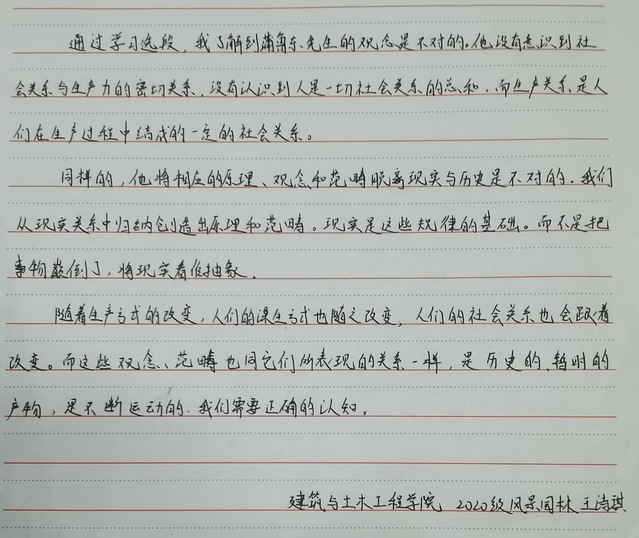 通过学习选段，我了解到蒲鲁东先生的观念是不对的。他没有意识到社
会关系与生产力的密切关系，没有认识到人是一切社会关系的总和，而生产关系是人
们在生产过程中结成的一定的社会关系。
同样的，他将相应的原理、观念和范畴脱离现实与历史是不对的。我们
从现实关系中归纳创造出原理和范畴。现实是这些规律的基础。而不是把
事物颠倒了，将现实看作抽象。
随着生产方式的改变，人们的谋生方式也随之改变，人们的社会关系也会跟着
改变。而这些观念、范畴也同它们所表现的关系一样，是历史的、暂时的
产物，是不断运动的。我们需要正确的认知。
建筑与土木工程学院 2020级风景园林 王诗琪